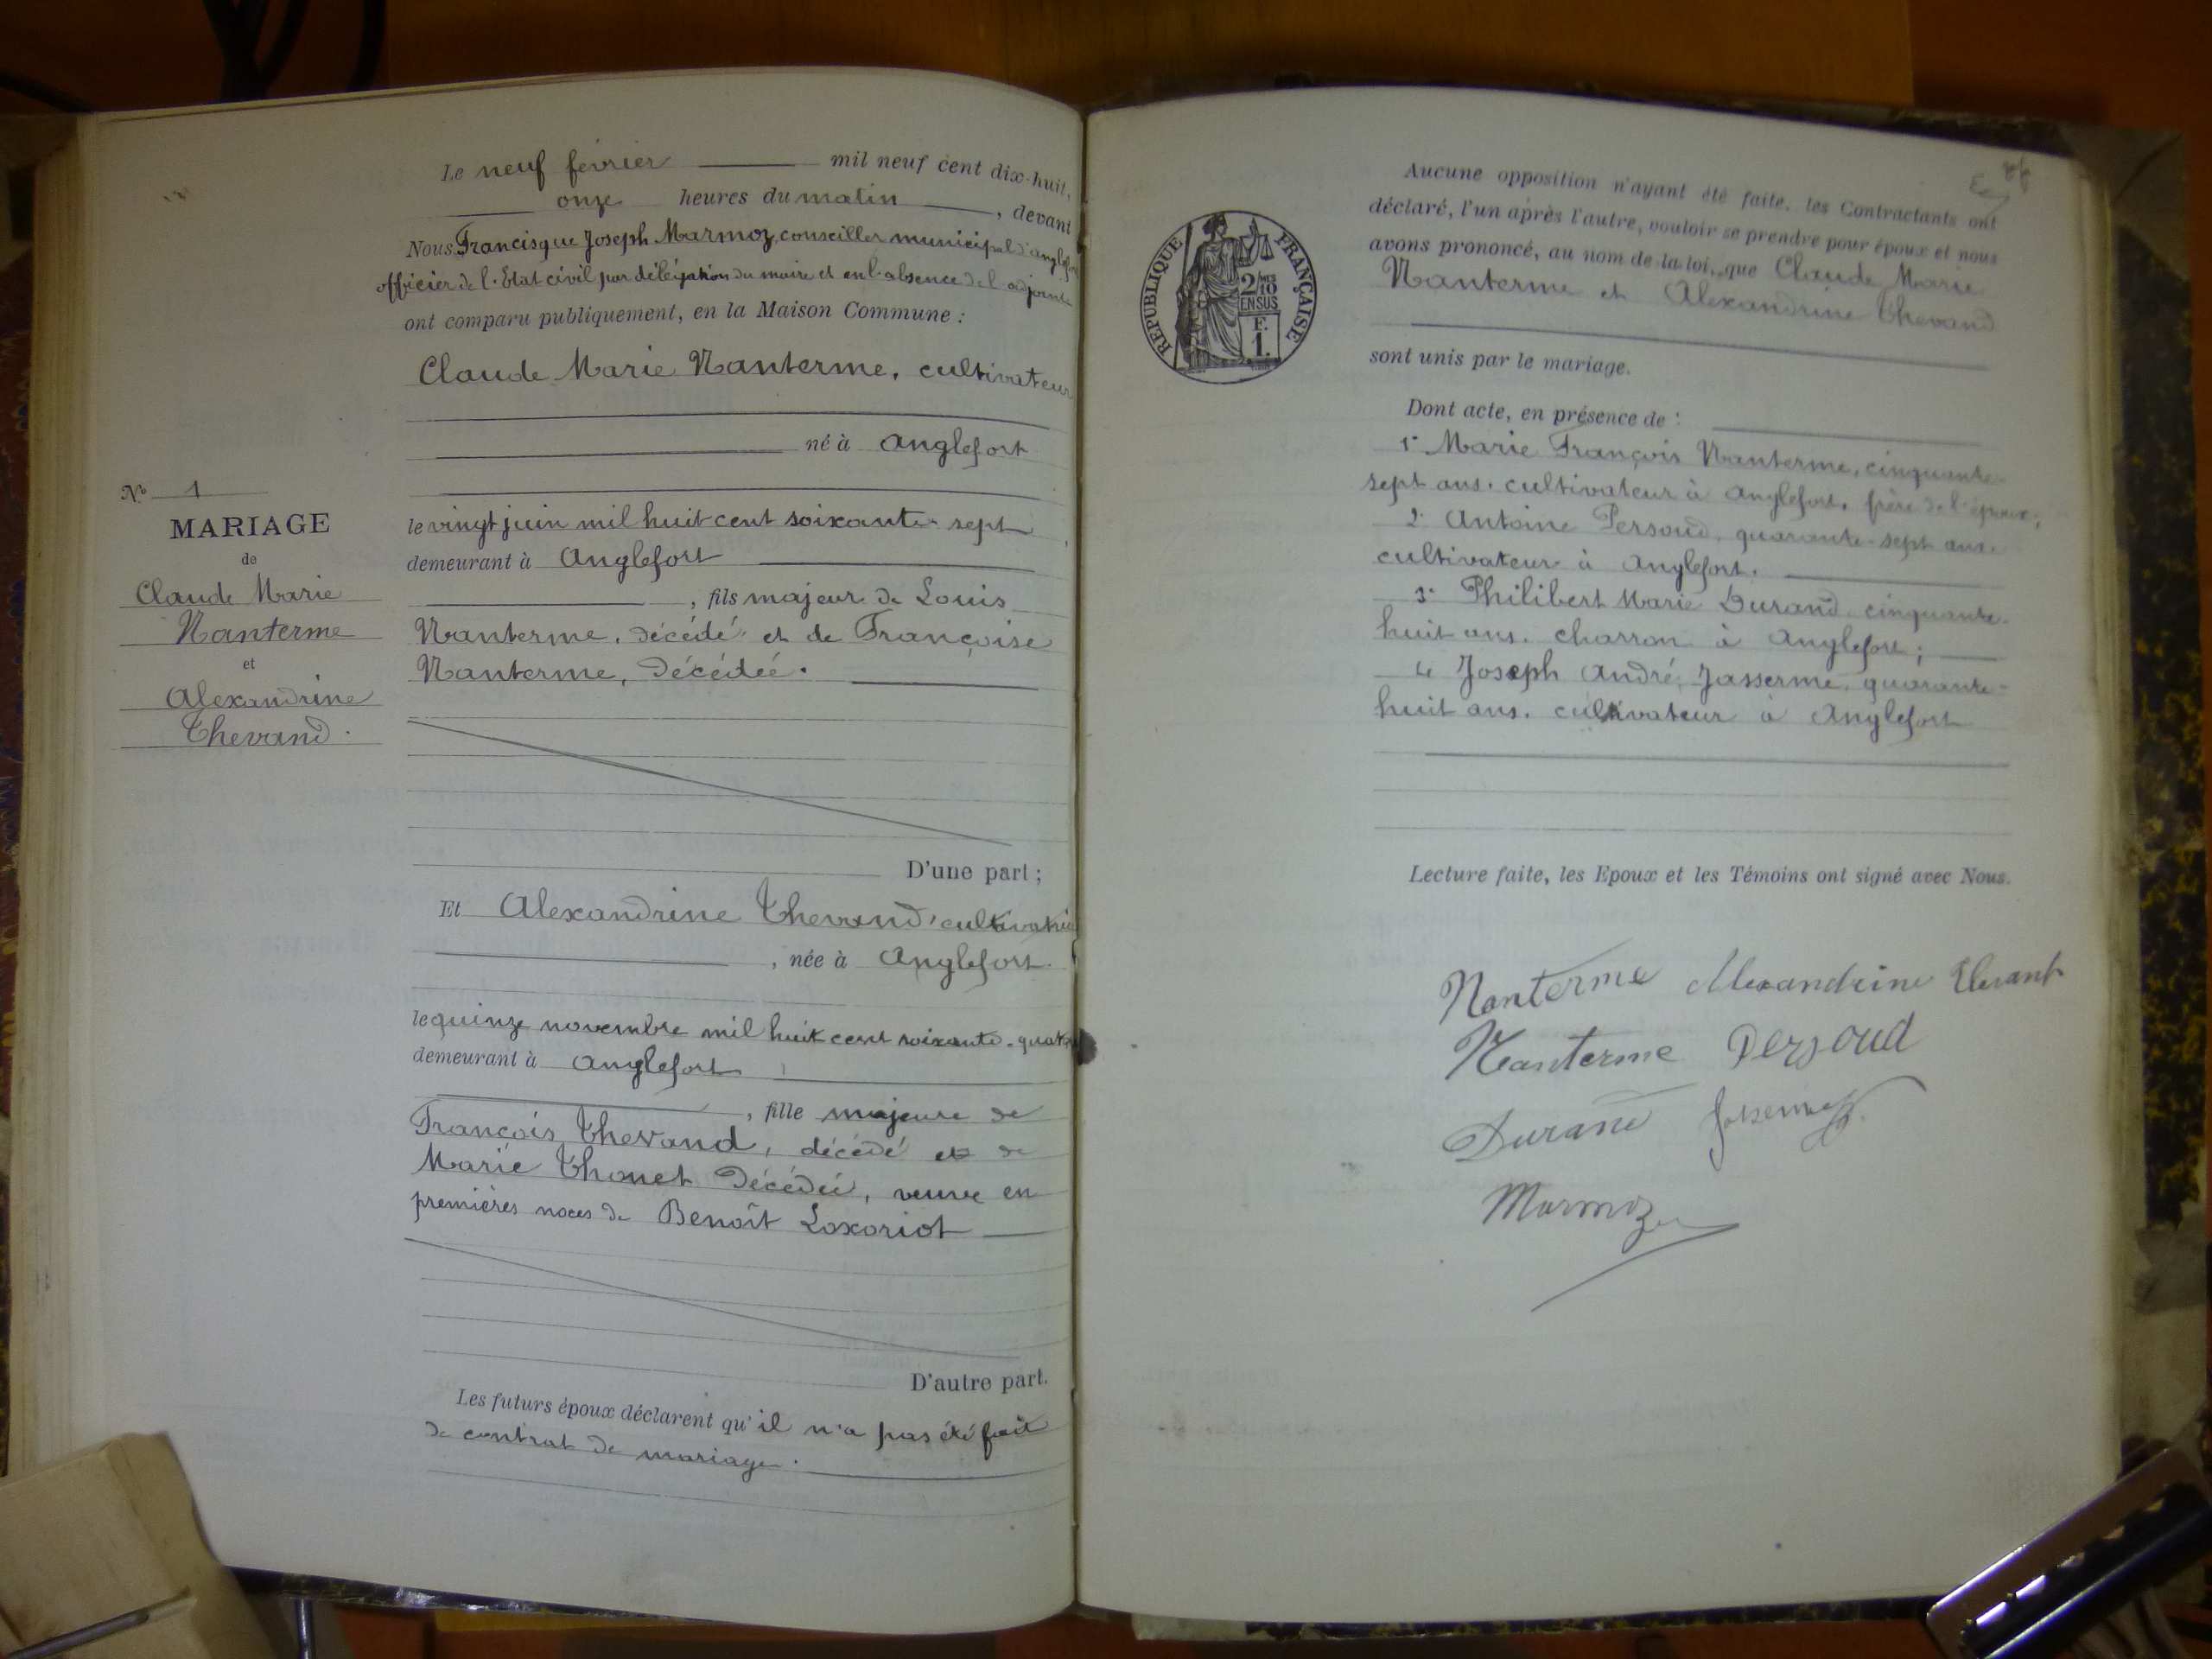 Le neuf février mil neuf cent dix-huit,
onze heures du matin, devant
Nous Francisque Joseph Marmoz, conseiller municipal d'anglefort
officier de l'Etat civil par délégation du maire et en l'absence de l'adjoint
ont comparu publiquement, en la Maison Commune :
Claude Marie Nanterme, cultivateur
né à Anglefort
le vingt juin mil huit cent soixante-sept
demeurant à Anglefort
, fils majeur de Louis
Nanterme, décédé et de Françoise
Nanterme, décédée.
D'une part ;
No 1
MARIAGE
de
Claude Marie
Nanterme
et
Alexandrine
Thevand.
Et Alexandrine Thevand, cultivatrice
, née à Anglefort
le quinze novembre mil huit cent soixante-quatre
demeurant à Anglefort
, fille majeure de
François Thevand, décédé et de
Marie Thonet décédée, veuve en
premières noces de Benoît Loxoriot
D'autre part.
Les futurs époux déclarent qu'il n'a pas été fait
de contrat de mariage.
RÉPUBLIQUE FRANÇAISE
2/10
EN SUS
F.
1.
Aucune opposition n'ayant été faite, les Contractants ont
déclaré, l'un après l'autre, vouloir se prendre pour époux et nous
avons prononcé, au nom de la loi, que Claude Marie
Nanterme et Alexandrine Thevand
sont unis par le mariage.
Dont acte, en présence de :
1° Marie François Nanterme, cinquante-
sept ans, cultivateur à Anglefort, frère de l'époux ;
2° Antoine Persoud, quarante-sept ans,
cultivateur à Anglefort.
3° Philibert Marie Durand, cinquante-
huit ans, charron à Anglefort ;
4° Joseph André Jasserme, quarante-
huit ans, cultivateur à Anglefort
Lecture faite, les Epoux et les Témoins ont signé avec Nous.
Nanterme Alexandrine Thevant
Nanterme Persoud
Durand
Marmoz